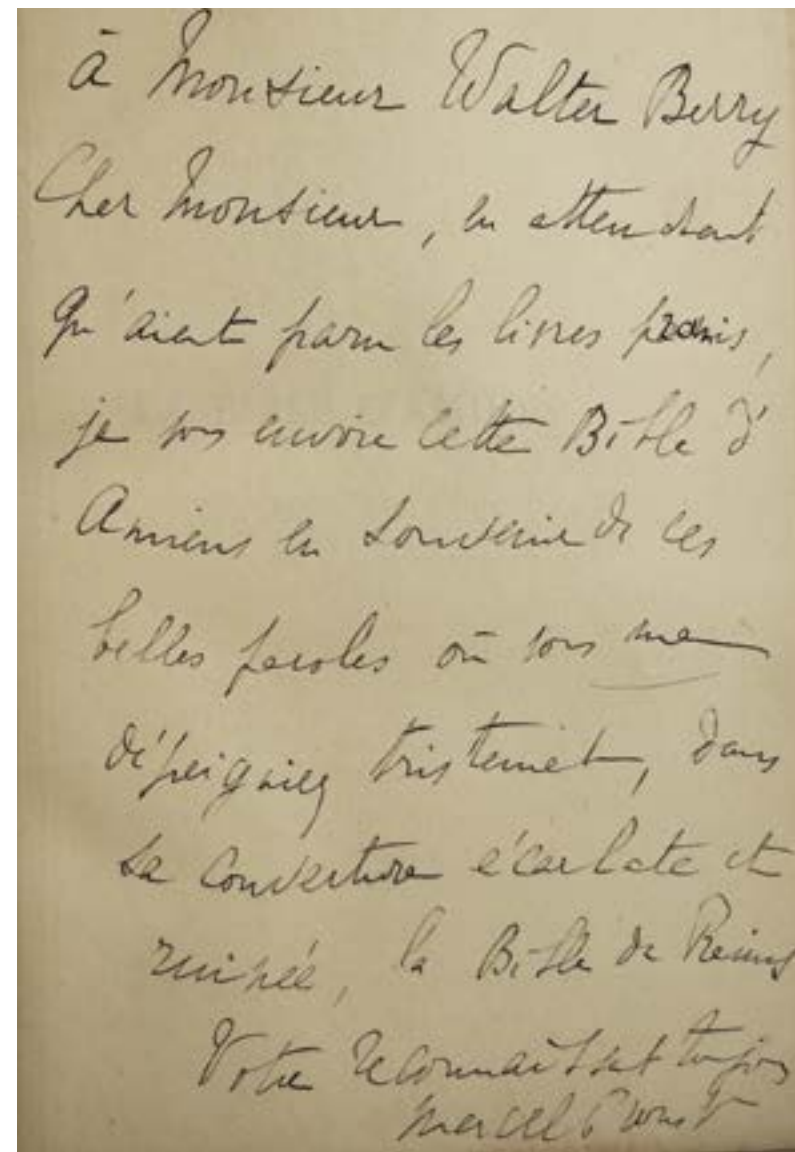 à Monsieur Walter Berry
Cher Monsieur, en attendant
qu'aient paru les livres promis,
je vous envoie cette Bible d'
Amiens en souvenir de ces
belles paroles où vous me
dépeigniez tristement, dans
sa couverture écarlate et
ruinée, la Bible de Reims
Votre reconnaissant toujours
Marcel Proust